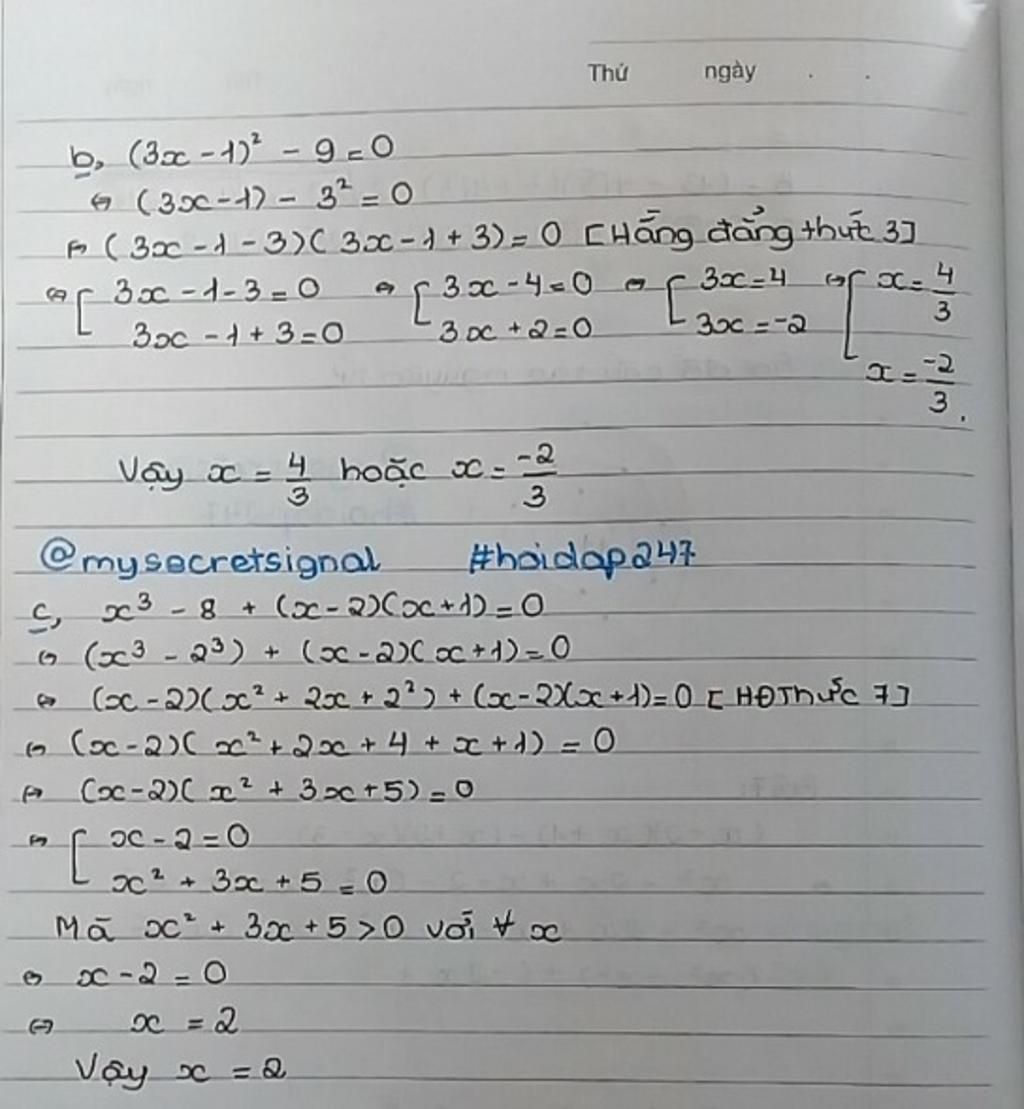 Thứ ngày . .
b, (3x - 1)² - 9 = 0
⇔ (3x - 1) - 3² = 0
⇔ (3x - 1 - 3)(3x - 1 + 3) = 0 [Hằng đẳng thức 3]
⇔ [ 3x - 1 - 3 = 0 ⇔ [ 3x - 4 = 0 ⇔ [ 3x = 4 ⇔ [ x = 4/3
3x - 1 + 3 = 0 3x + 2 = 0 3x = -2
x = -2/3.
Vậy x = 4/3 hoặc x = -2/3
@mysecretsignal #hoidap247
c, x³ - 8 + (x - 2)(x + 1) = 0
⇔ (x³ - 2³) + (x - 2)(x + 1) = 0
⇔ (x - 2)(x² + 2x + 2²) + (x - 2)(x + 1) = 0 [HĐThức 7]
⇔ (x - 2)(x² + 2x + 4 + x + 1) = 0
⇔ (x - 2)(x² + 3x + 5) = 0
⇔ [ x - 2 = 0
x² + 3x + 5 = 0
Mà x² + 3x + 5 > 0 với ∀ x
⇔ x - 2 = 0
⇔ x = 2
Vậy x = 2